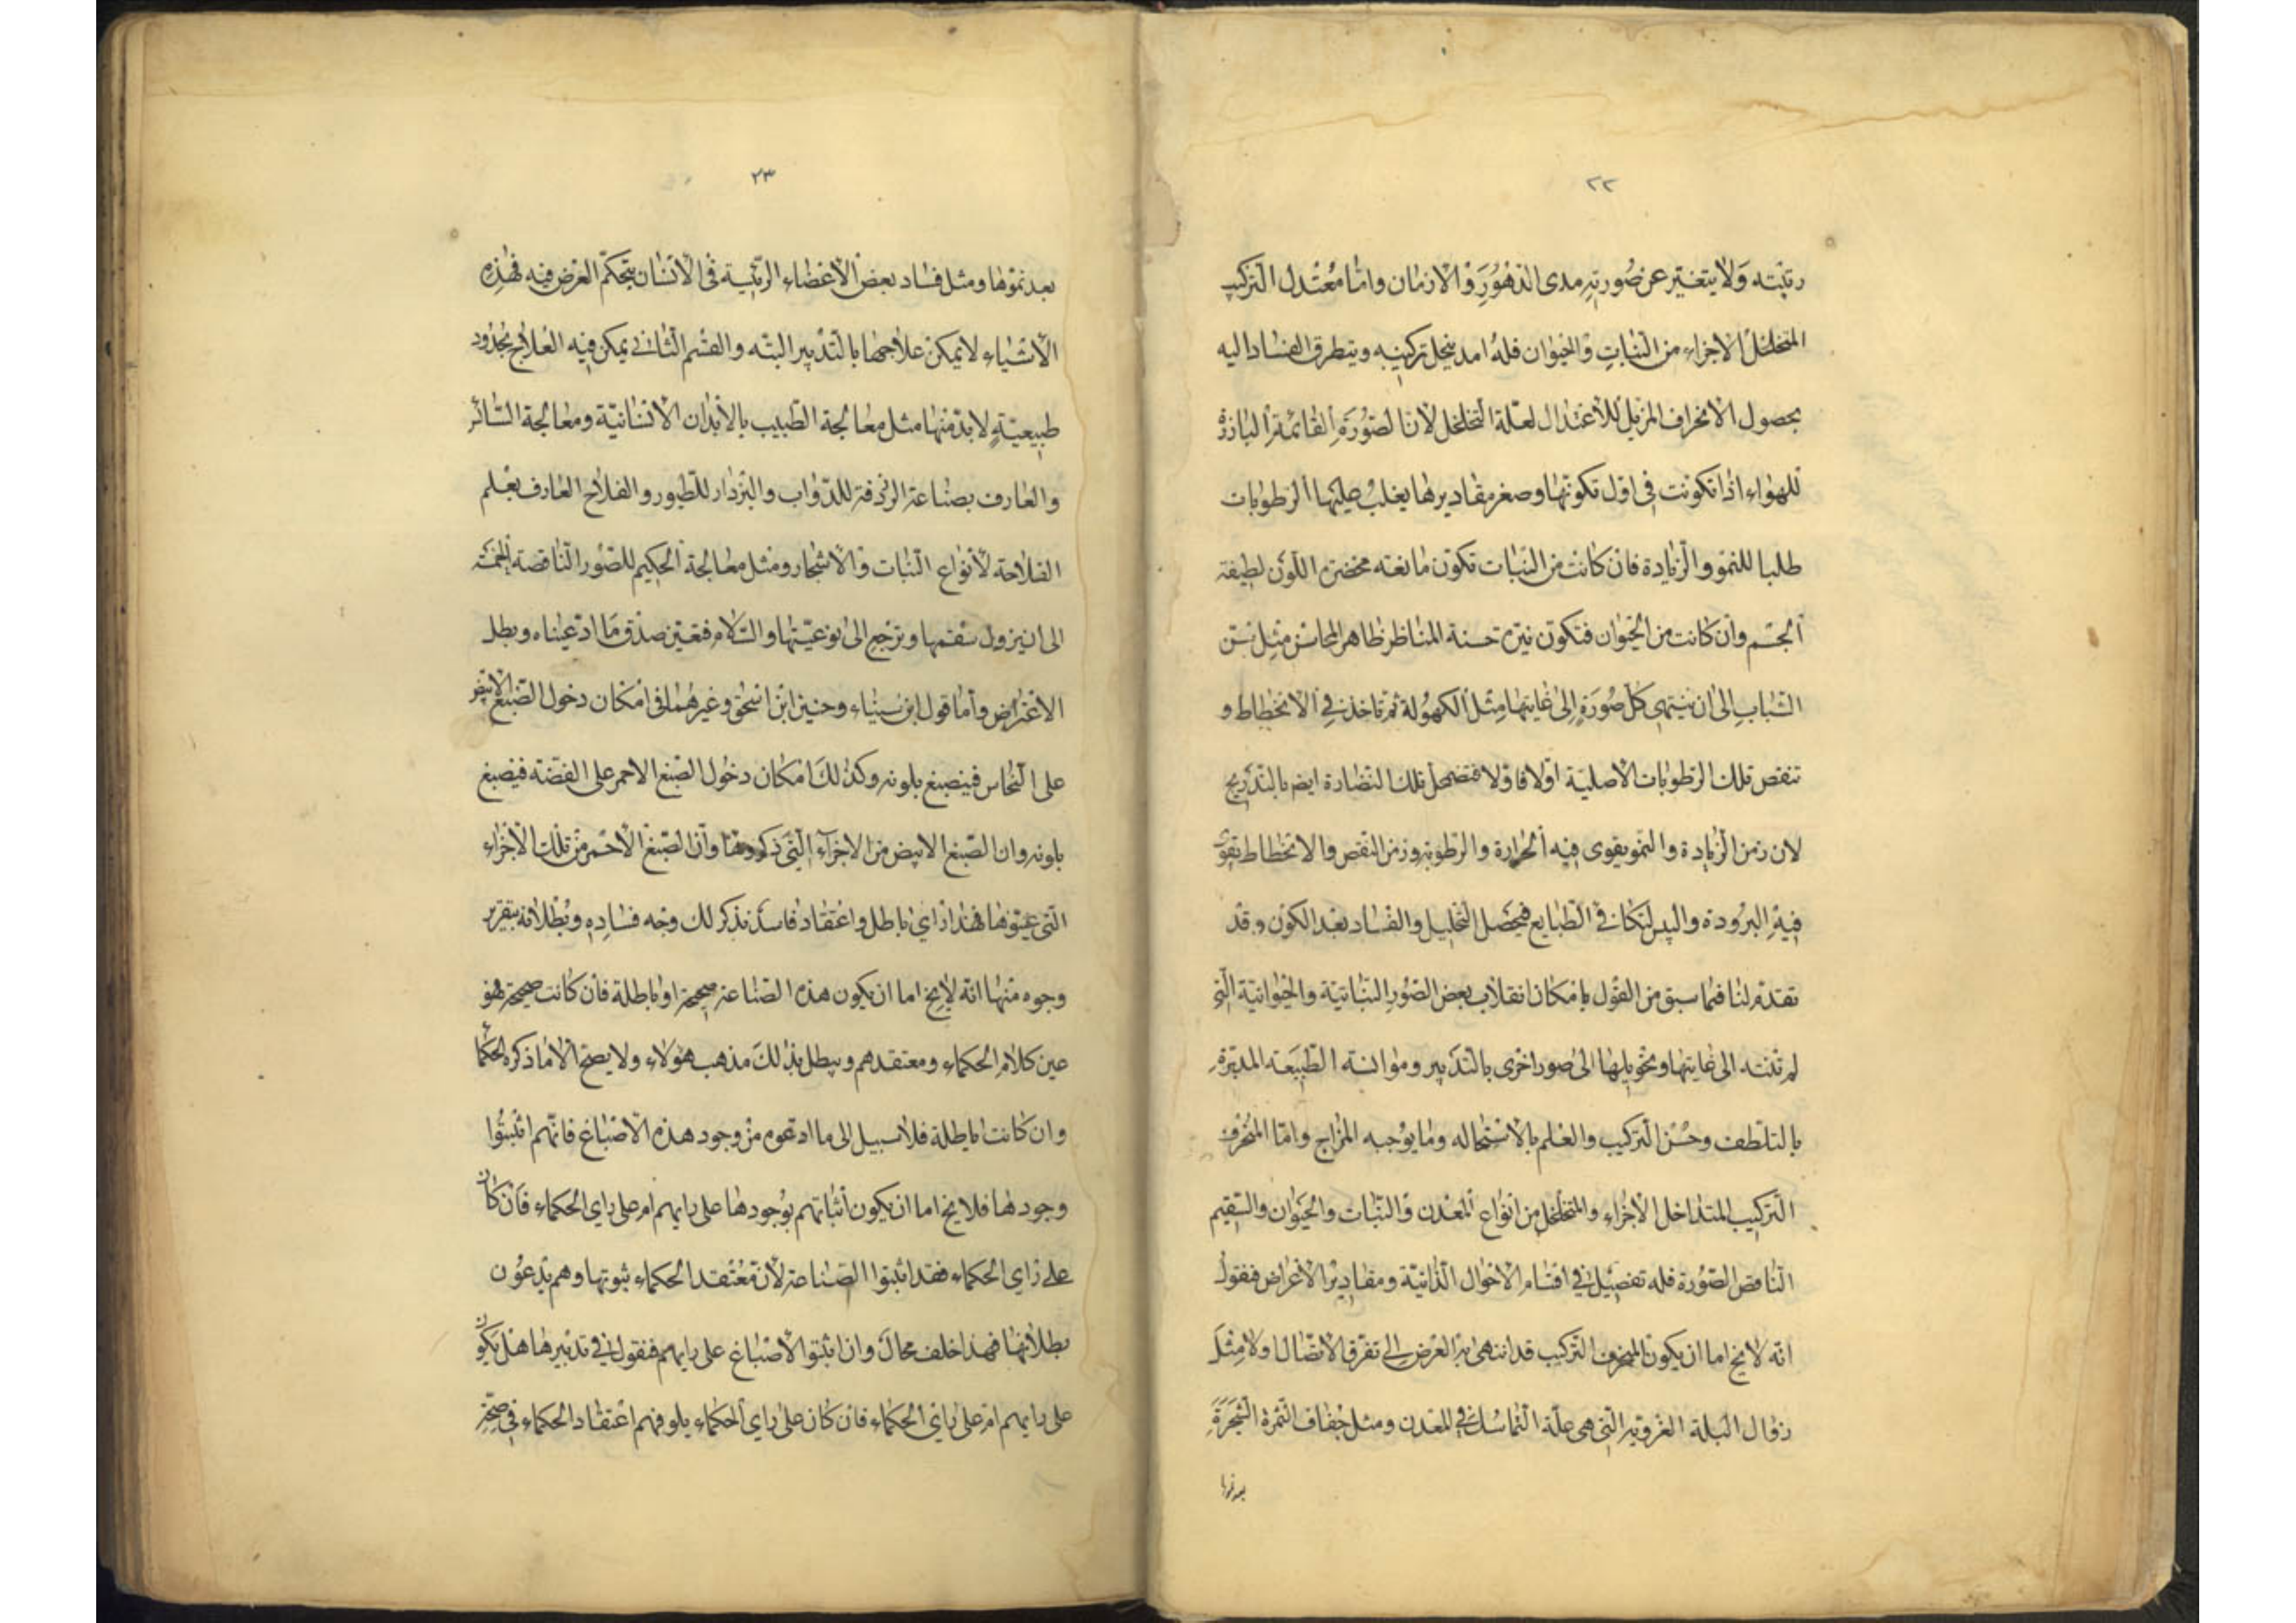 ٢٢
رتبته ولا يتغير عن صورته مدى الدهور والازمان واما معتدل التركيب
المتخلخل الاجزاء من النبات والحيوان فله امد ينحل تركيبه ويتطرق الفساد اليه
بحصول الانحراف المزيل للاعتدال لعلة التخلخل لان الصورة القائمة البارزة
للهواء اذا تكونت في اول تكونها وصغر مقاديرها يغلب عليها الرطوبات
طلبا للنمو والزيادة فان كانت من النبات تكون مائعته مخضرة اللون لطيفة
الجسم وان كانت من الحيوان فتكون نيرة حسنة المناظر ظاهر المحاسن مثل سن
الشباب الى ان ينتهي كل صورة الى غايتها مثل الكهولة ثم تاخذ في الانحطاط و
تنقص تلك الرطوبات الاصلية اولا فاولا فتضمحل تلك النضارة ايضم بالتدريج
لان زمن الزيادة والنمو يقوى فيه الحرارة والرطوبة وزمن النقص والانحطاط يقوى
فيه البرودة واليبس لتكافي الطبايع فيحصل التحليل والفساد بعد الكون وقد
تقدم لنا فيما سبق من القول بامكان انقلاب بعض الصور النباتية والحيوانية التي
لم تنته الى غايتها وتحويلها الى صور اخرى بالتدبير وموانسة الطبيعة المدبرة
بالتلطف وحسن التركيب والعلم بالاستحاله وما يوجبه المزاج واما المنحرف
التركيب المتداخل الاجزاء والمتخلخل من انواع المعدن والنبات والحيوان والسقيم
الناقص الصورة فله تفصيل في اقسام الاحوال الذاتية ومقادير الاعراض فنقول
انه لا يخ اما ان يكون المنحرف التركيب قد انتهى به العرض الى تفرق الاتصال اولا مثل
زوال البلة الغروية التي هي علة التماسك في المعدن ومثل جفاف الثمرة الشجرة
بعد نموها
٢٣
بعد نموها ومثل فساد بعض الاعضاء الرئيسة في الانسان بتحكم العرض فيه فهذه
الاشياء لا يمكن علاجها بالتدبير البته والقسم الثاني يمكن فيه العلاج بحدود
طبيعية لا بد منها مثل معالجة الطبيب بالابدان الانسانية ومعالجة السائر
والعارف بصناعة الزردقة للدواب والبزدار للطيور والفلاح العارف بعلم
الفلاحة لانواع النبات والاشجار ومثل معالجة الحكيم للصور الناقصة الخمسة
الى ان يزول سقمها ويرجع الى نوعيتها والسلام فقد تعين صدق ما ادعيناه وبطل
الاعتراض واما قول ابن سيناء وحنين ابن اسحق وغيرهما في امكان دخول الصبغ الابيض
على النحاس فينصبغ بلونه وكذلك امكان دخول الصبغ الاحمر على الفضة فينصبغ
بلونه وان الصبغ الابيض من الاجزاء التي ذكروها وان الصبغ الاحمر من تلك الاجزاء
التي عينوها فهذا راي باطل واعتقاد فاسد نذكر لك وجه فساده وبطلانه بتقرير
وجوه منها انه لا يخ اما ان يكون هذه الصناعة صحيحة او باطلة فان كانت صحيحة فهو
عين كلام الحكماء ومعتقدهم ويبطل بذلك مذهب هؤلاء ولا يصح الا ما ذكره الحكما
وان كانت باطلة فلا سبيل الى ما ادعوه من وجود هذه الاصباغ فانهم اثبتوا
وجودها فلا يخ اما ان يكون اثباتهم بوجودها على رايهم ام على راي الحكماء فان كان
على راي الحكماء فقد اثبتوا الصناعة لان معتقد الحكماء ثبوتها وهم يدعون
بطلانها فهذا خلف محال وان اثبتوا الاصباغ على رايهم فنقول في تدبيرها هل يكون
على رايهم ام على راي الحكماء فان كان على راي الحكماء يلوفهم اعتقاد الحكماء في صحة